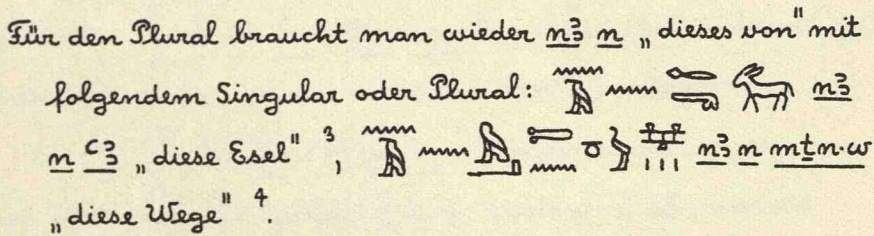 Für den Plural braucht man wieder nꜣ n „dieses von" mit
folgendem Singular oder Plural: nꜣ
n ꜥꜣ „diese Esel" ³, nꜣ n mṯn·w
„diese Wege" ⁴.